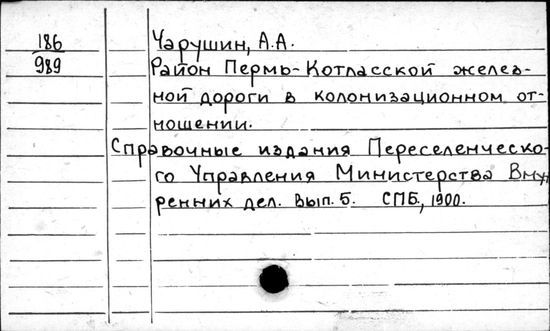 186
989
Чарушин, А.А.
Район Пермь-Котласской желез-
ной дороги в колонизационном от-
ношении.
Справочные издания Переселенческо-
го Управления Министерства Внут-
ренних дел. Вып. 5. СПБ, 1900.